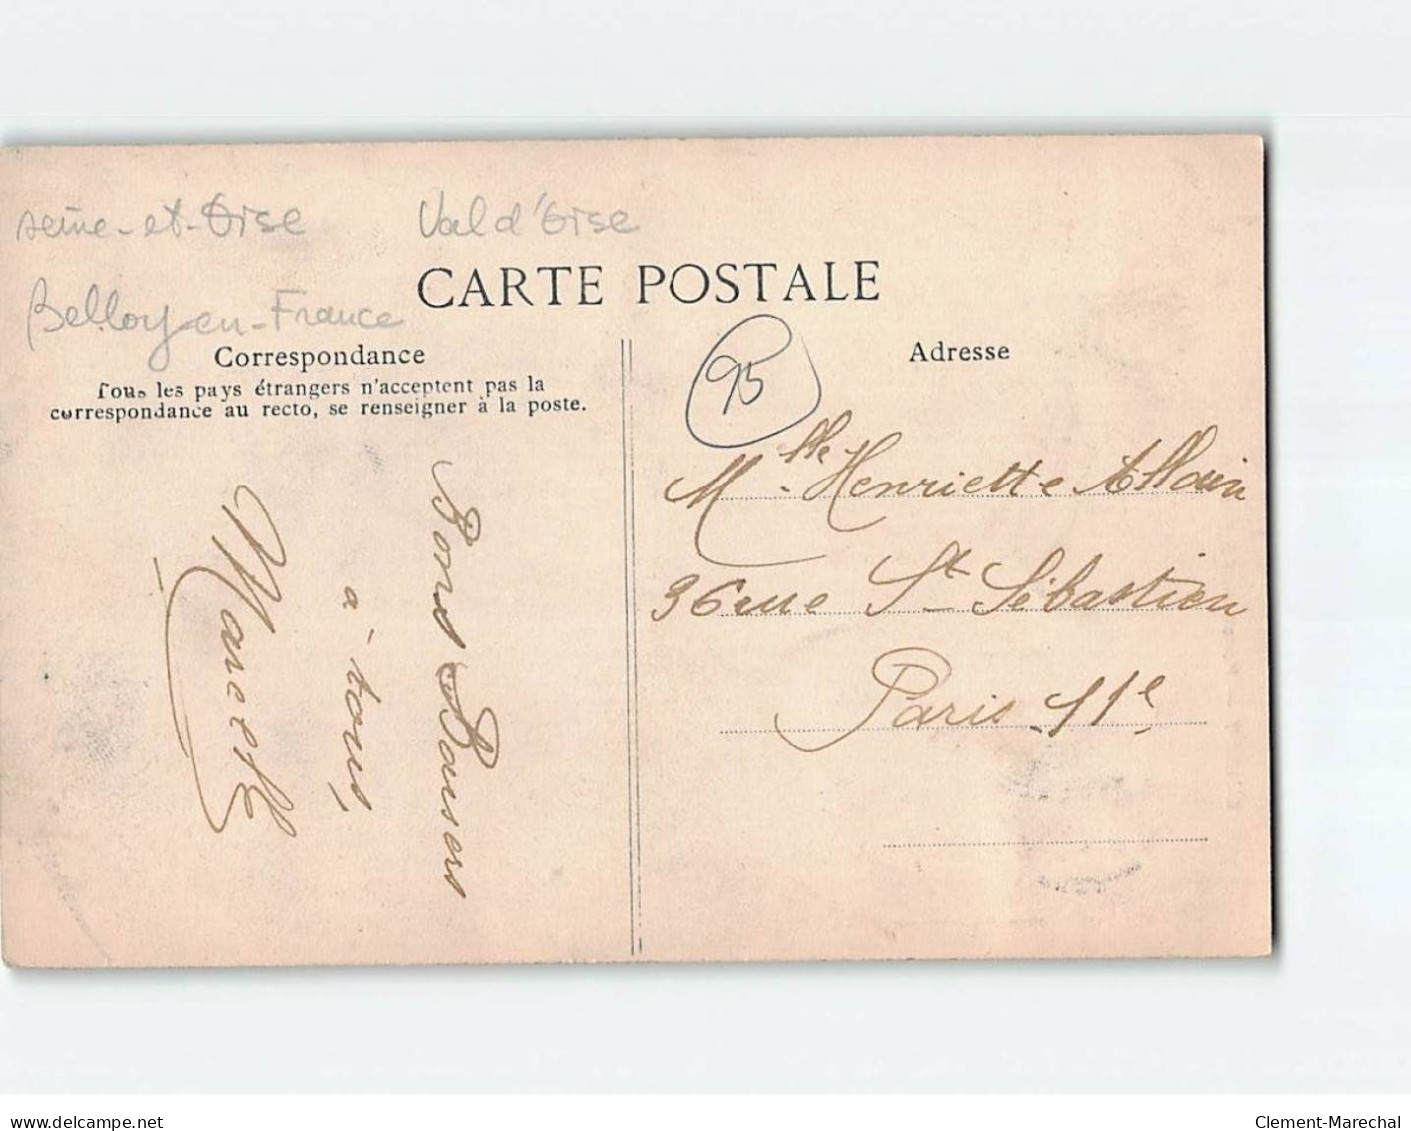 seine-et-Oise
Val d'Oise
Belloy-en-France
CARTE POSTALE
Correspondance
Tous les pays étrangers n'acceptent pas la
correspondance au recto, se renseigner à la poste.
Adresse
95
Mlle Henriette Allain
36 rue St Sébastien
Paris 11e
Bons Baisers
à tous
Marcelle
www.delcampe.net
Clement-Marechal